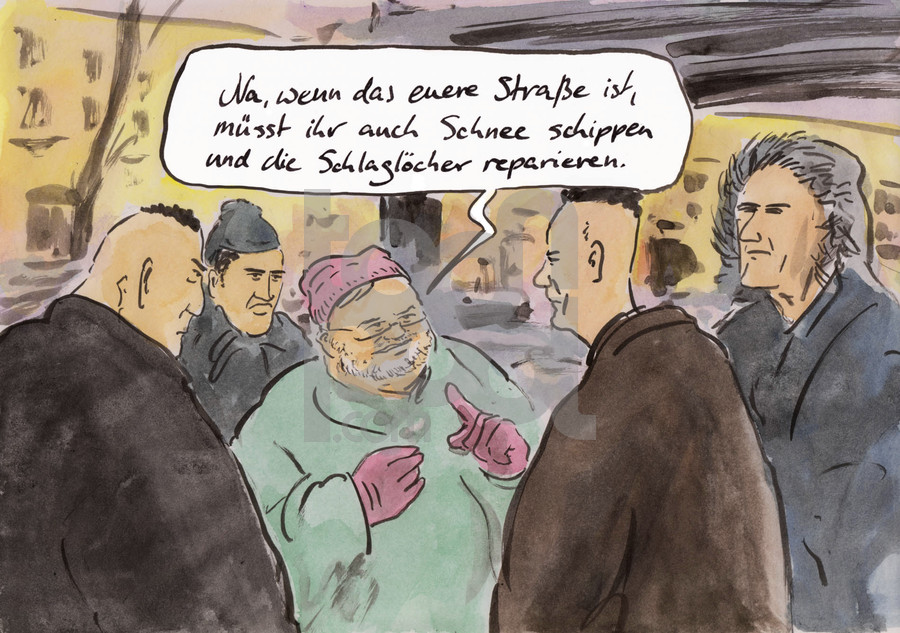 Na, wenn das euere Straße ist,
müsst ihr auch Schnee schippen
und die Schlaglöcher reparieren.